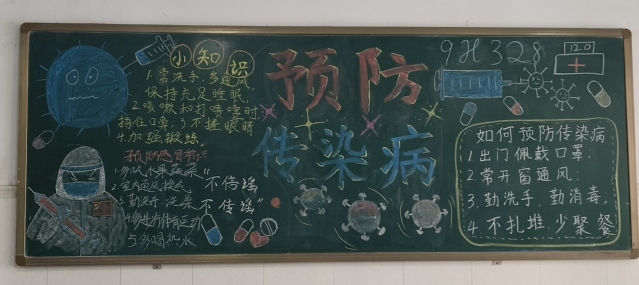 小知识
1.常洗手.多通风
保持充足睡眠
2.咳嗽和打喷嚏时
捂住口鼻.3.不揉眼睛
4.加强锻炼.
预防
传染病
9H328
120
预防
2.室内通风换气
3.勤洗手
5.多喝热水
"不信谣
不传谣"
如何预防传染病
1.出门佩戴口罩;
2.常开窗通风;
3.勤洗手.勤消毒,
4.不扎堆.少聚餐